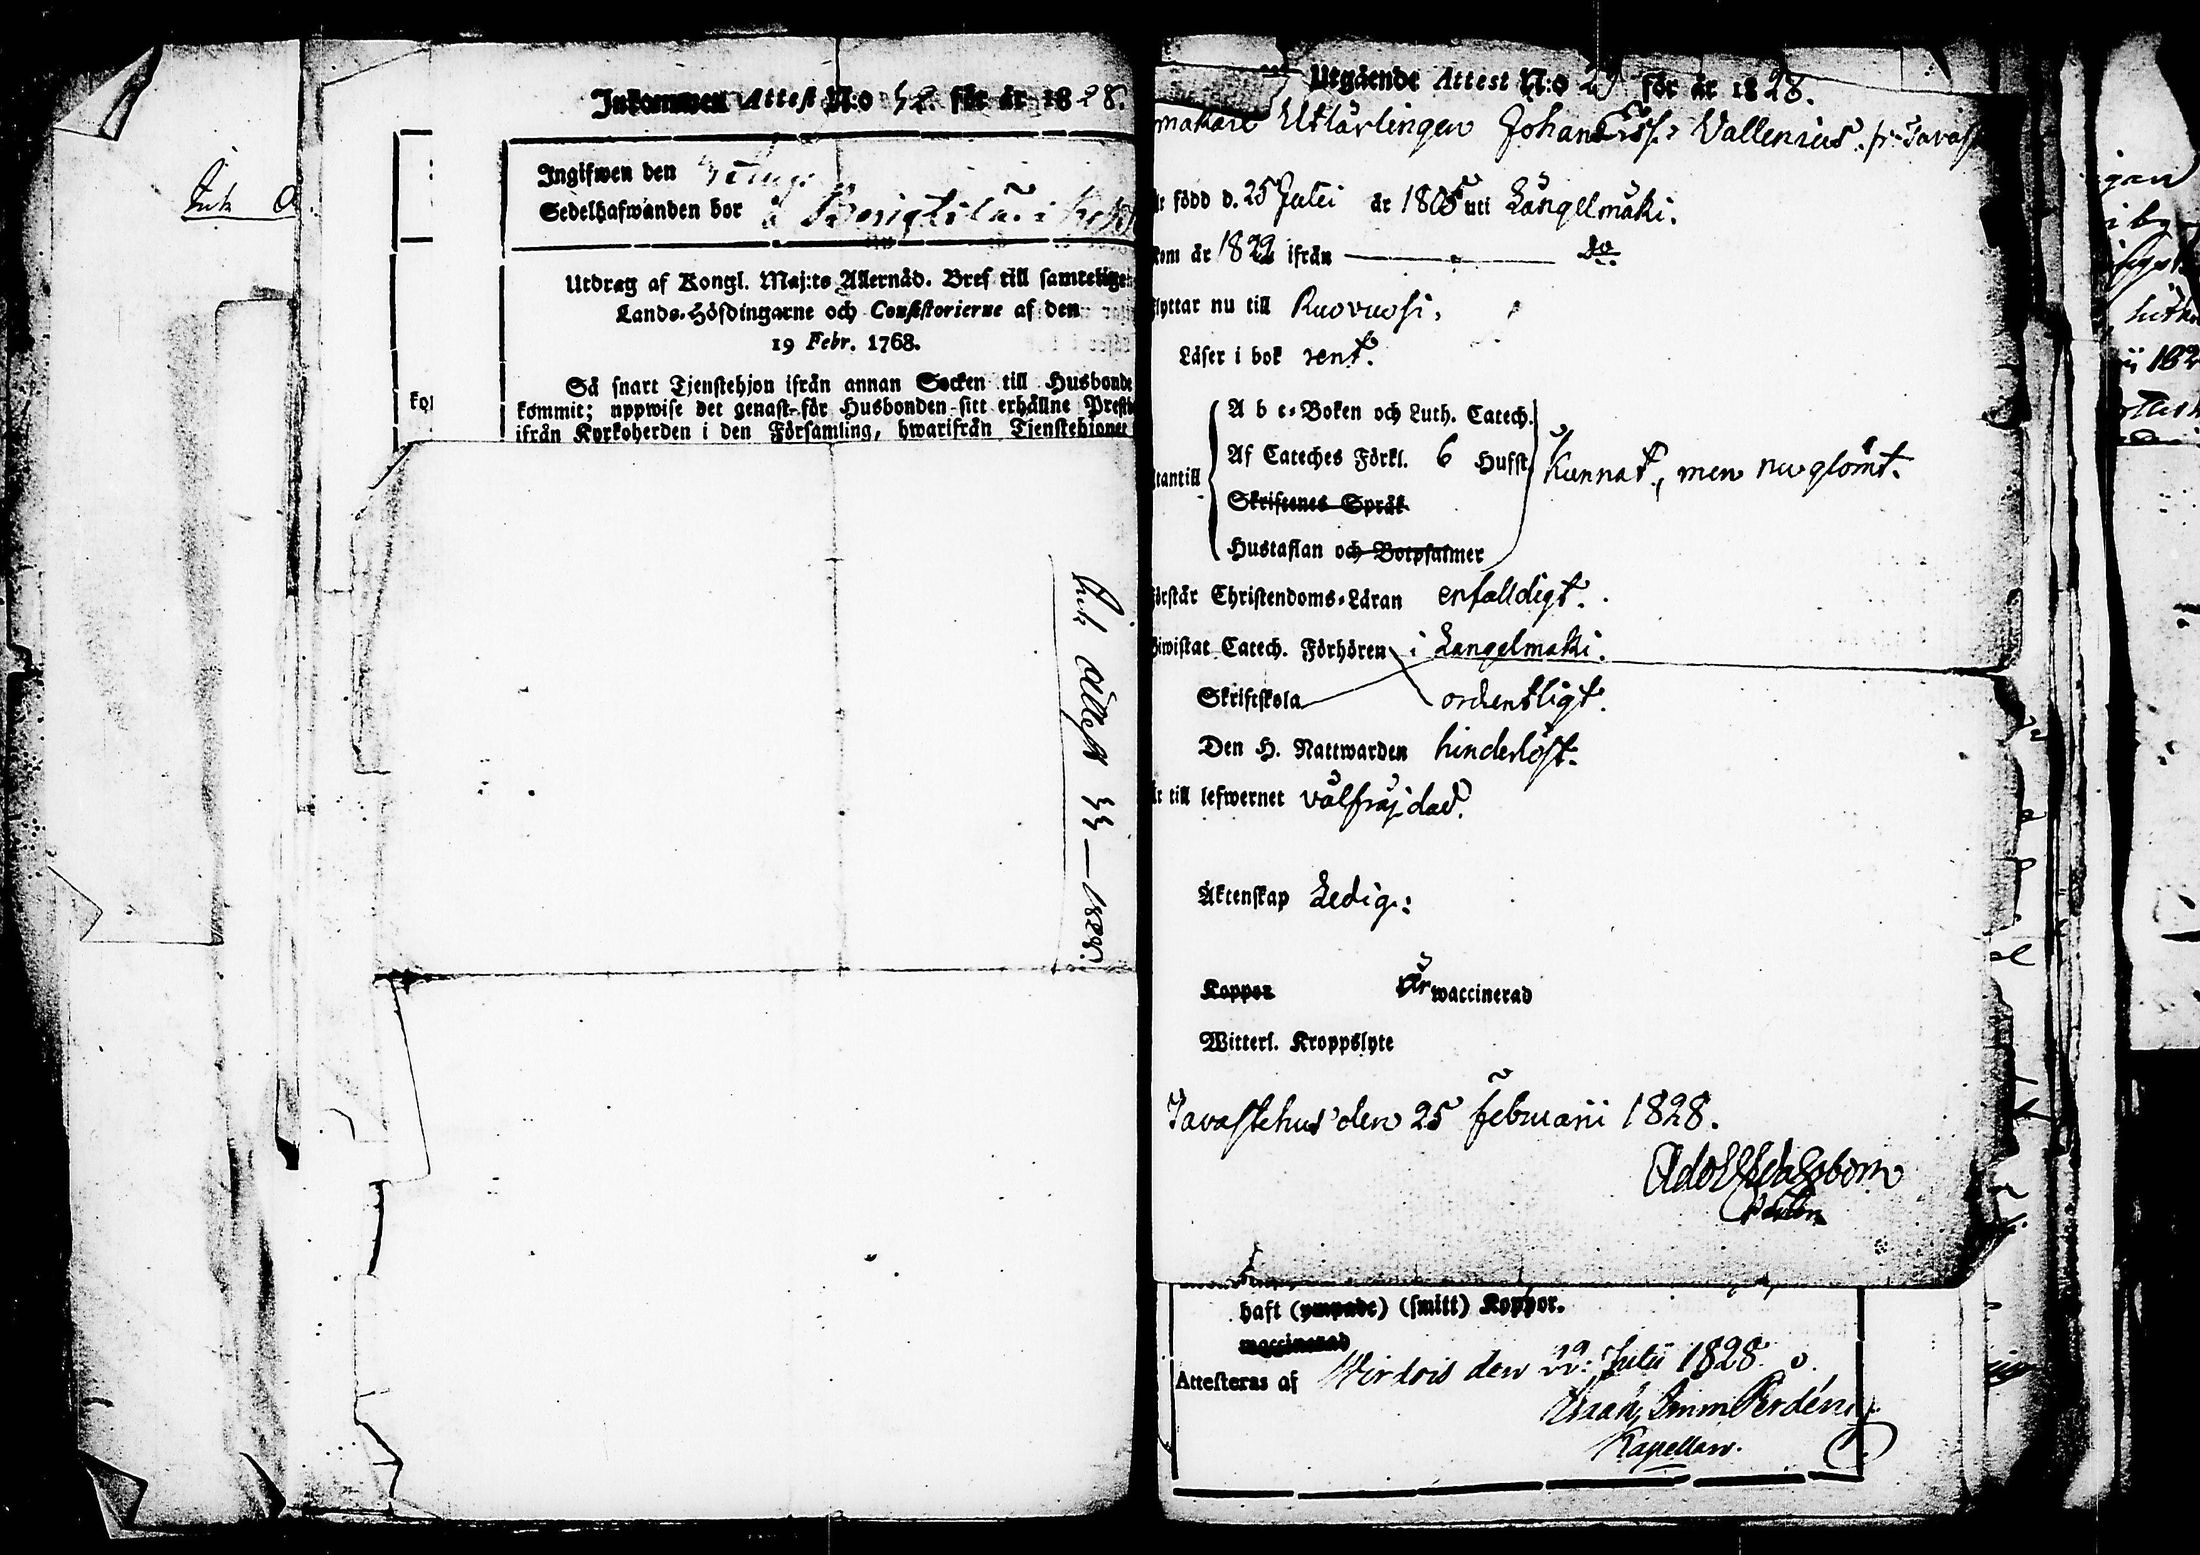 Ink
Inkommen Attest N:o 42. för år 1828.
Ingifwen den
Sedelhafwanden bor å
Utdrag af Kongl. Maj:ts Allernåd. Bref till samtelige
Lands-Höfdingarne och Consistorierne af den
19 Febr. 1768.
Så snart Tjenstehjon ifrån annan Socken till Husbonde
kommit; uppwise det genast för Husbonden sitt erhållne Prest
ifrån Kyrkoherden i den Församling, hwarifrån Tjenstehionet
kol
Ink attest 44 — 1828.
Utgående Attest N:o för år 1828.
makare Utlärlingen Johan Vallenius. fr. Tavast
är född d. 25 Julii år 1805 uti Längelmäki.
kom år 1822 ifrån — Do
flyttar nu till Ruovesi.
Läser i bok rent.
A b c-Boken och Luth. Catech.
Af Cateches Förkl. 6 Hufst.
Kunnat, men nu glömt.
utantill
Skriftenes Språk
Hustaflan och Botpsalmer
Förstår Christendoms-Läran enfalldigt.
Biwistat Catech. Förhören i Längelmäki.
Skriftskola ordentligt.
Den H. Nattwarden hinderlöst.
Är till lefwernet välfräjdad.
Äktenskap Ledig:
Koppor är waccinerad
Witterl. Kroppslyte
Tavastehus den 25 februarii 1828.
haft (ympade) (smitt) Koppor.
waccinerad
Attesteras af Wirdois den 22: Julii 1828.
Kapellan.